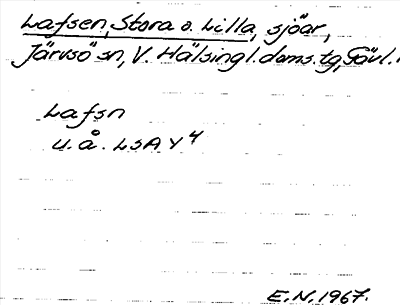 Lafsen, Stora o. Lilla, sjöar,
Järvsö sn, V. Hälsingl. doms. tg, Gävl.
Lafsn
u. å. LSA Y 4
E.N. 1967.